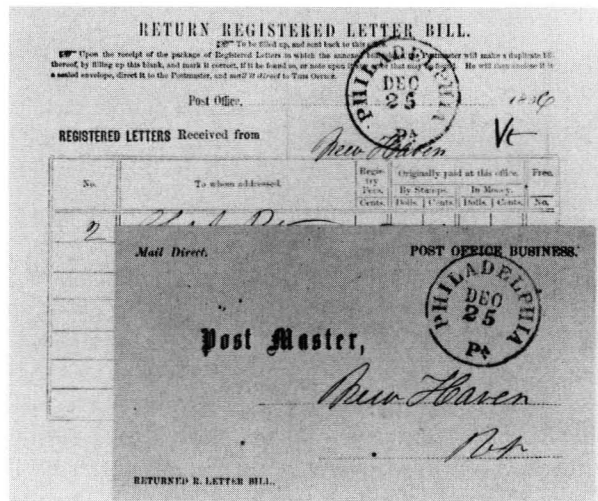 RETURN REGISTERED LETTER BILL.
To be filled up, and sent back to this
Upon the receipt of the package of Registered Letters in which the annexed Postmaster will make a duplicate bill
thereof, by filling up this blank, and mark it correct, if it be found so, or note upon that may He will then enclose it in
a sealed envelope, direct it to the Postmaster, and mail it direct to THIS OFFICE.
PHILADELPHIA
DEC
25
Pa
Post Office, 1856
REGISTERED LETTERS Received from New Haven Vt
No. To whom addressed. Registry Fees. Originally paid at this office. Free.
By Stamps. In Money.
Cents. Dolls. Cents. Dolls. Cents. No.
2
Mail Direct. POST OFFICE BUSINESS.
PHILADELPHIA
DEC
25
Pa
Post Master,
New Haven
RETURNED R. LETTER BILL.